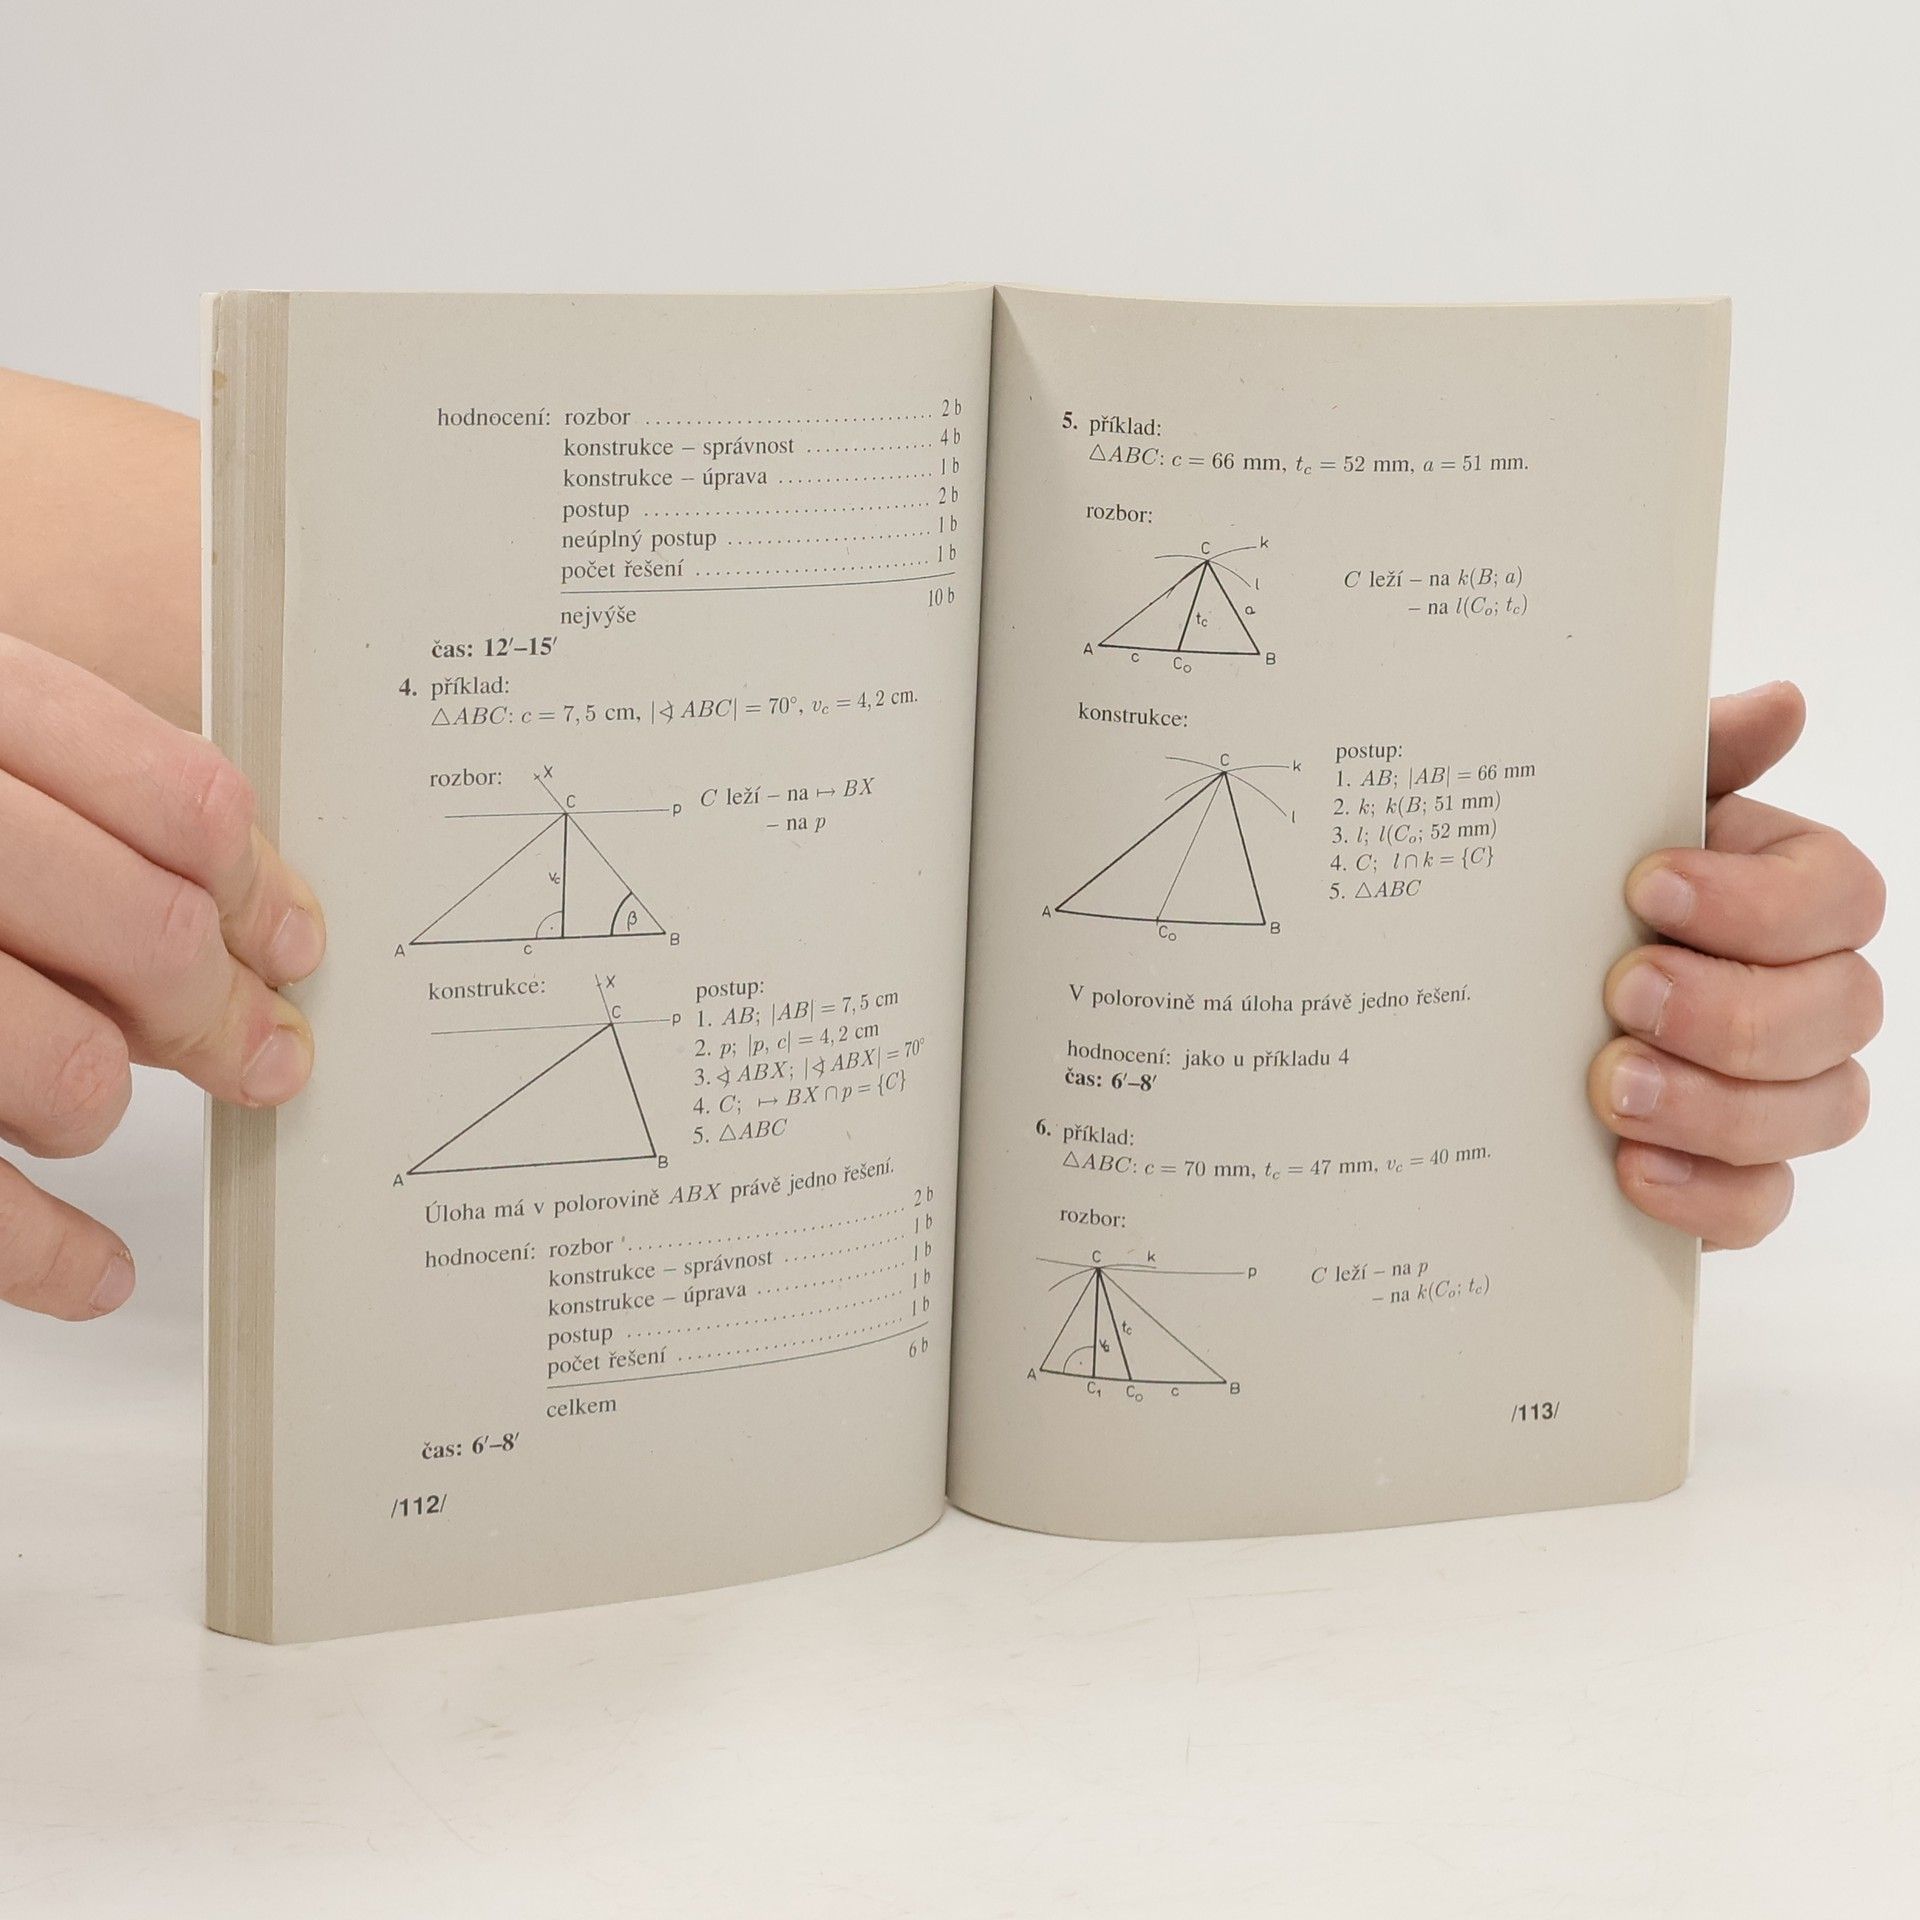 hodnocení: rozbor .............................. 2 b
konstrukce – správnost .............. 4 b
konstrukce – úprava ................. 1 b
postup .............................. 2 b
neúplný postup ...................... 1 b
počet řešení ......................... 1 b
nejvýše 10 b
čas: 12′–15′
4. příklad:
△ABC: c = 7,5 cm, |∢ ABC| = 70°, v_c = 4,2 cm.
rozbor:
X
C
p
C leží – na ↦ BX
– na p
v_c
β
A
c
B
konstrukce:
X
C
p
A
B
postup:
1. AB; |AB| = 7,5 cm
2. p; |p, c| = 4,2 cm
3. ∢ ABX; |∢ ABX| = 70°
4. C; ↦ BX ∩ p = {C}
5. △ABC
Úloha má v polorovině ABX právě jedno řešení.
hodnocení: rozbor .............................. 2 b
konstrukce – správnost .............. 1 b
konstrukce – úprava ................. 1 b
postup .............................. 1 b
počet řešení ......................... 1 b
celkem 6 b
čas: 6′–8′
/112/
5. příklad:
△ABC: c = 66 mm, t_c = 52 mm, a = 51 mm.
rozbor:
C
k
l
a
t_c
A
c
C₀
B
C leží – na k(B; a)
– na l(C₀; t_c)
konstrukce:
C
k
l
A
C₀
B
postup:
1. AB; |AB| = 66 mm
2. k; k(B; 51 mm)
3. l; l(C₀; 52 mm)
4. C; l ∩ k = {C}
5. △ABC
V polorovině má úloha právě jedno řešení.
hodnocení: jako u příkladu 4
čas: 6′–8′
6. příklad:
△ABC: c = 70 mm, t_c = 47 mm, v_c = 40 mm.
rozbor:
C
k
p
C leží – na p
– na k(C₀; t_c)
t_c
v_c
A
C₁
C₀
c
B
/113/